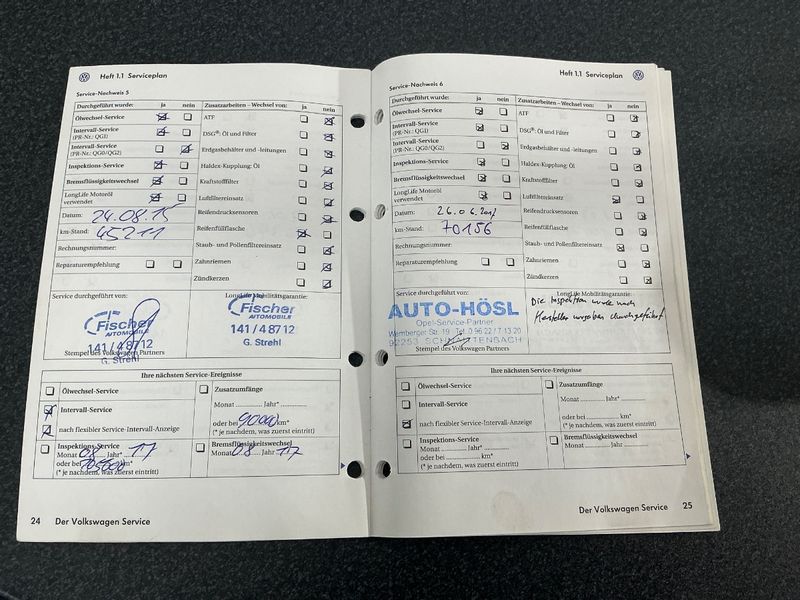 Heft 1.1 Serviceplan
Service-Nachweis 5
Durchgeführt wurde: ja nein
Ölwechsel-Service
Intervall-Service
(PR-Nr.: QG1)
Intervall-Service
(PR-Nr.: QG0/QG2)
Inspektions-Service
Bremsflüssigkeitswechsel
LongLife Motoröl
verwendet
Datum: 24.08.15
km-Stand: 45211
Rechnungsnummer:
Reparaturempfehlung
Zusatzarbeiten – Wechsel von: ja nein
ATF
DSG®: Öl und Filter
Erdgasbehälter und -leitungen
Haldex-Kupplung: Öl
Kraftstofffilter
Luftfiltereinsatz
Reifendrucksensoren
Reifenfüllflasche
Staub- und Pollenfiltereinsatz
Zahnriemen
Zündkerzen
Service durchgeführt von:
Fischer
AUTOMOBILE
141 / 48712
G. Strehl
Stempel des Volkswagen Partners
LongLife Mobilitätsgarantie:
Fischer
AUTOMOBILE
141 / 48712
G. Strehl
Ihre nächsten Service-Ereignisse
Ölwechsel-Service
Intervall-Service
nach flexibler Service-Intervall-Anzeige
Inspektions-Service
Monat 08 Jahr* 17
oder bei 105000 km*
(* je nachdem, was zuerst eintritt)
Zusatzumfänge
Monat Jahr*
oder bei 90000 km*
(* je nachdem, was zuerst eintritt)
Bremsflüssigkeitswechsel
Monat 08 Jahr 17
24 Der Volkswagen Service
Heft 1.1 Serviceplan
Service-Nachweis 6
Durchgeführt wurde: ja nein
Ölwechsel-Service
Intervall-Service
(PR-Nr.: QG1)
Intervall-Service
(PR-Nr.: QG0/QG2)
Inspektions-Service
Bremsflüssigkeitswechsel
LongLife Motoröl
verwendet
Datum: 26.06.2017
km-Stand: 70156
Rechnungsnummer:
Reparaturempfehlung
Zusatzarbeiten – Wechsel von: ja nein
ATF
DSG®: Öl und Filter
Erdgasbehälter und -leitungen
Haldex-Kupplung: Öl
Kraftstofffilter
Luftfiltereinsatz
Reifendrucksensoren
Reifenfüllflasche
Staub- und Pollenfiltereinsatz
Zahnriemen
Zündkerzen
Service durchgeführt von:
AUTO-HÖSL
Opel-Service-Partner
Wernberger Str. 19 Tel. 0 96 22 / 7 13 20
92253 SCHNAITTENBACH
Stempel des Volkswagen Partners
LongLife Mobilitätsgarantie:
Die Inspektion wurde nach
Hersteller vorgaben durchgeführt
Ihre nächsten Service-Ereignisse
Ölwechsel-Service
Intervall-Service
nach flexibler Service-Intervall-Anzeige
Inspektions-Service
Monat Jahr*
oder bei km*
(* je nachdem, was zuerst eintritt)
Zusatzumfänge
Monat Jahr*
oder bei km*
(* je nachdem, was zuerst eintritt)
Bremsflüssigkeitswechsel
Monat Jahr
Der Volkswagen Service 25